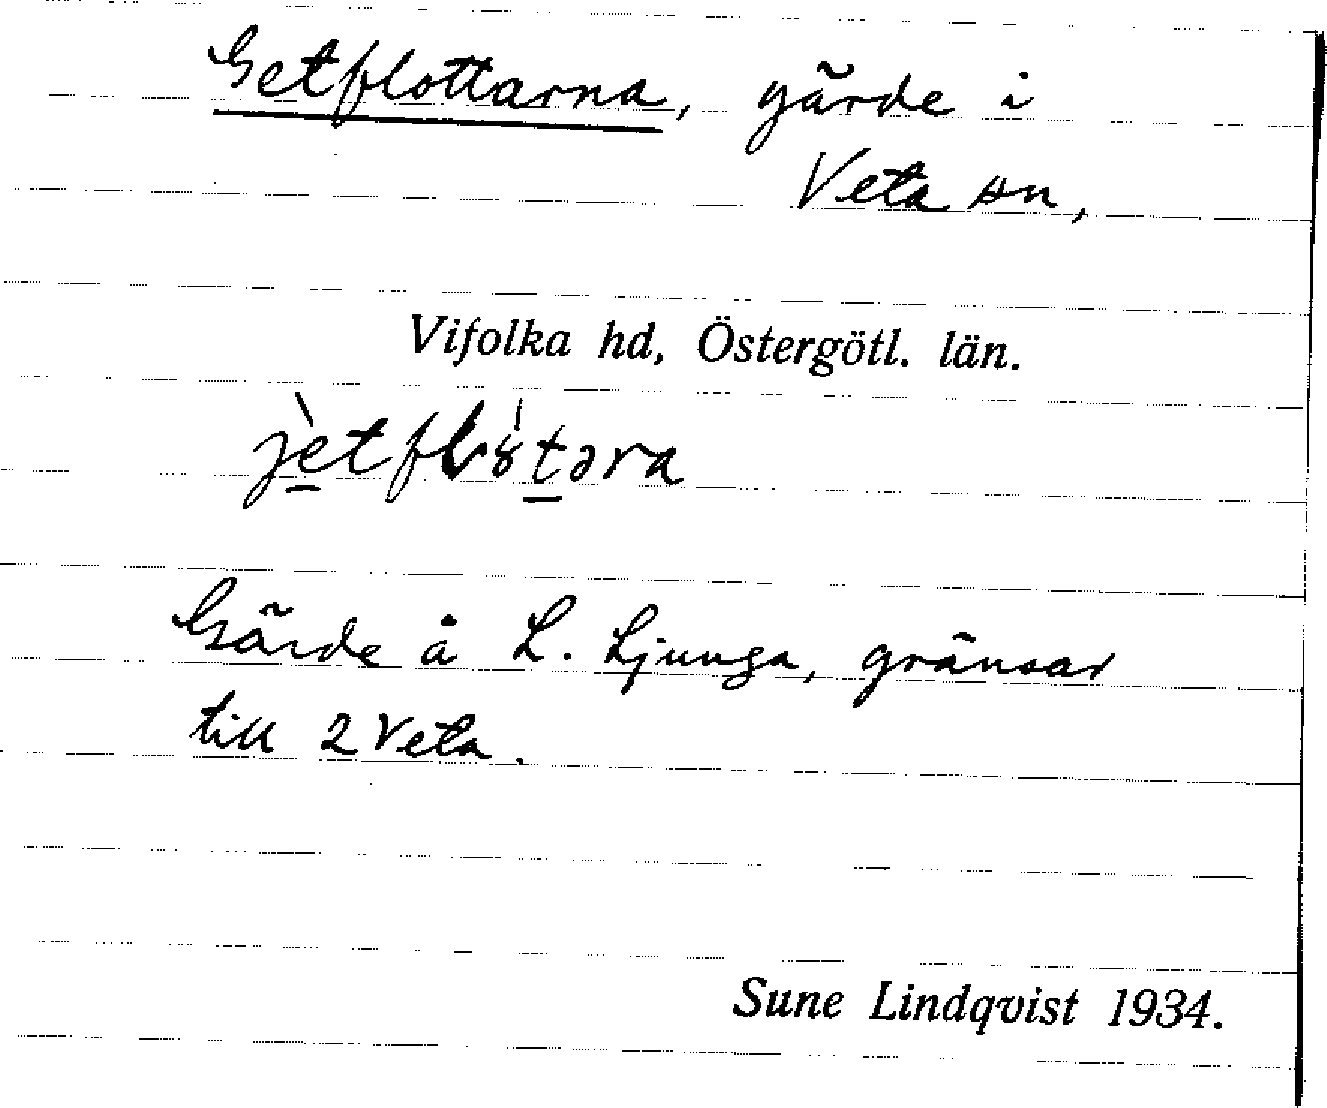 Getflottarna, gärde i
Veta sn,
Vifolka hd, Östergötl. län.
jètflȣ̀təra
Gärde å L. Ljunga, gränsar
till 2 Veta.
Sune Lindqvist 1934.